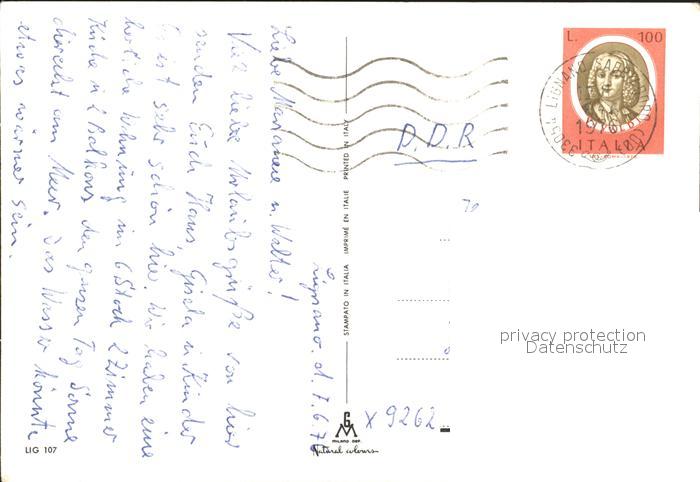 Lignano. d. 7.6.76
Liebe Marianne u. Walter!
Viele liebe Urlaubsgrüße von hier
senden Euch Hans, Gisela u. Kinder
Es ist sehr schön hier. Wir haben eine
herrliche Wohnung im 6 Stock 2 Zimmer
Küche u. 2 Balkons den ganzen Tag Sonne
direckt am Meer. Das Wasser könnte
etwas wärmer sein.
LIG 107
STAMPATO IN ITALIA IMPRIMÉ EN ITALIE PRINTED IN ITALY
GM
MILANO DEP.
Natural colours
X 9262
D.D.R
L. 100
ITALIA
33054 LIGNANO
1976
privacy protection
Datenschutz